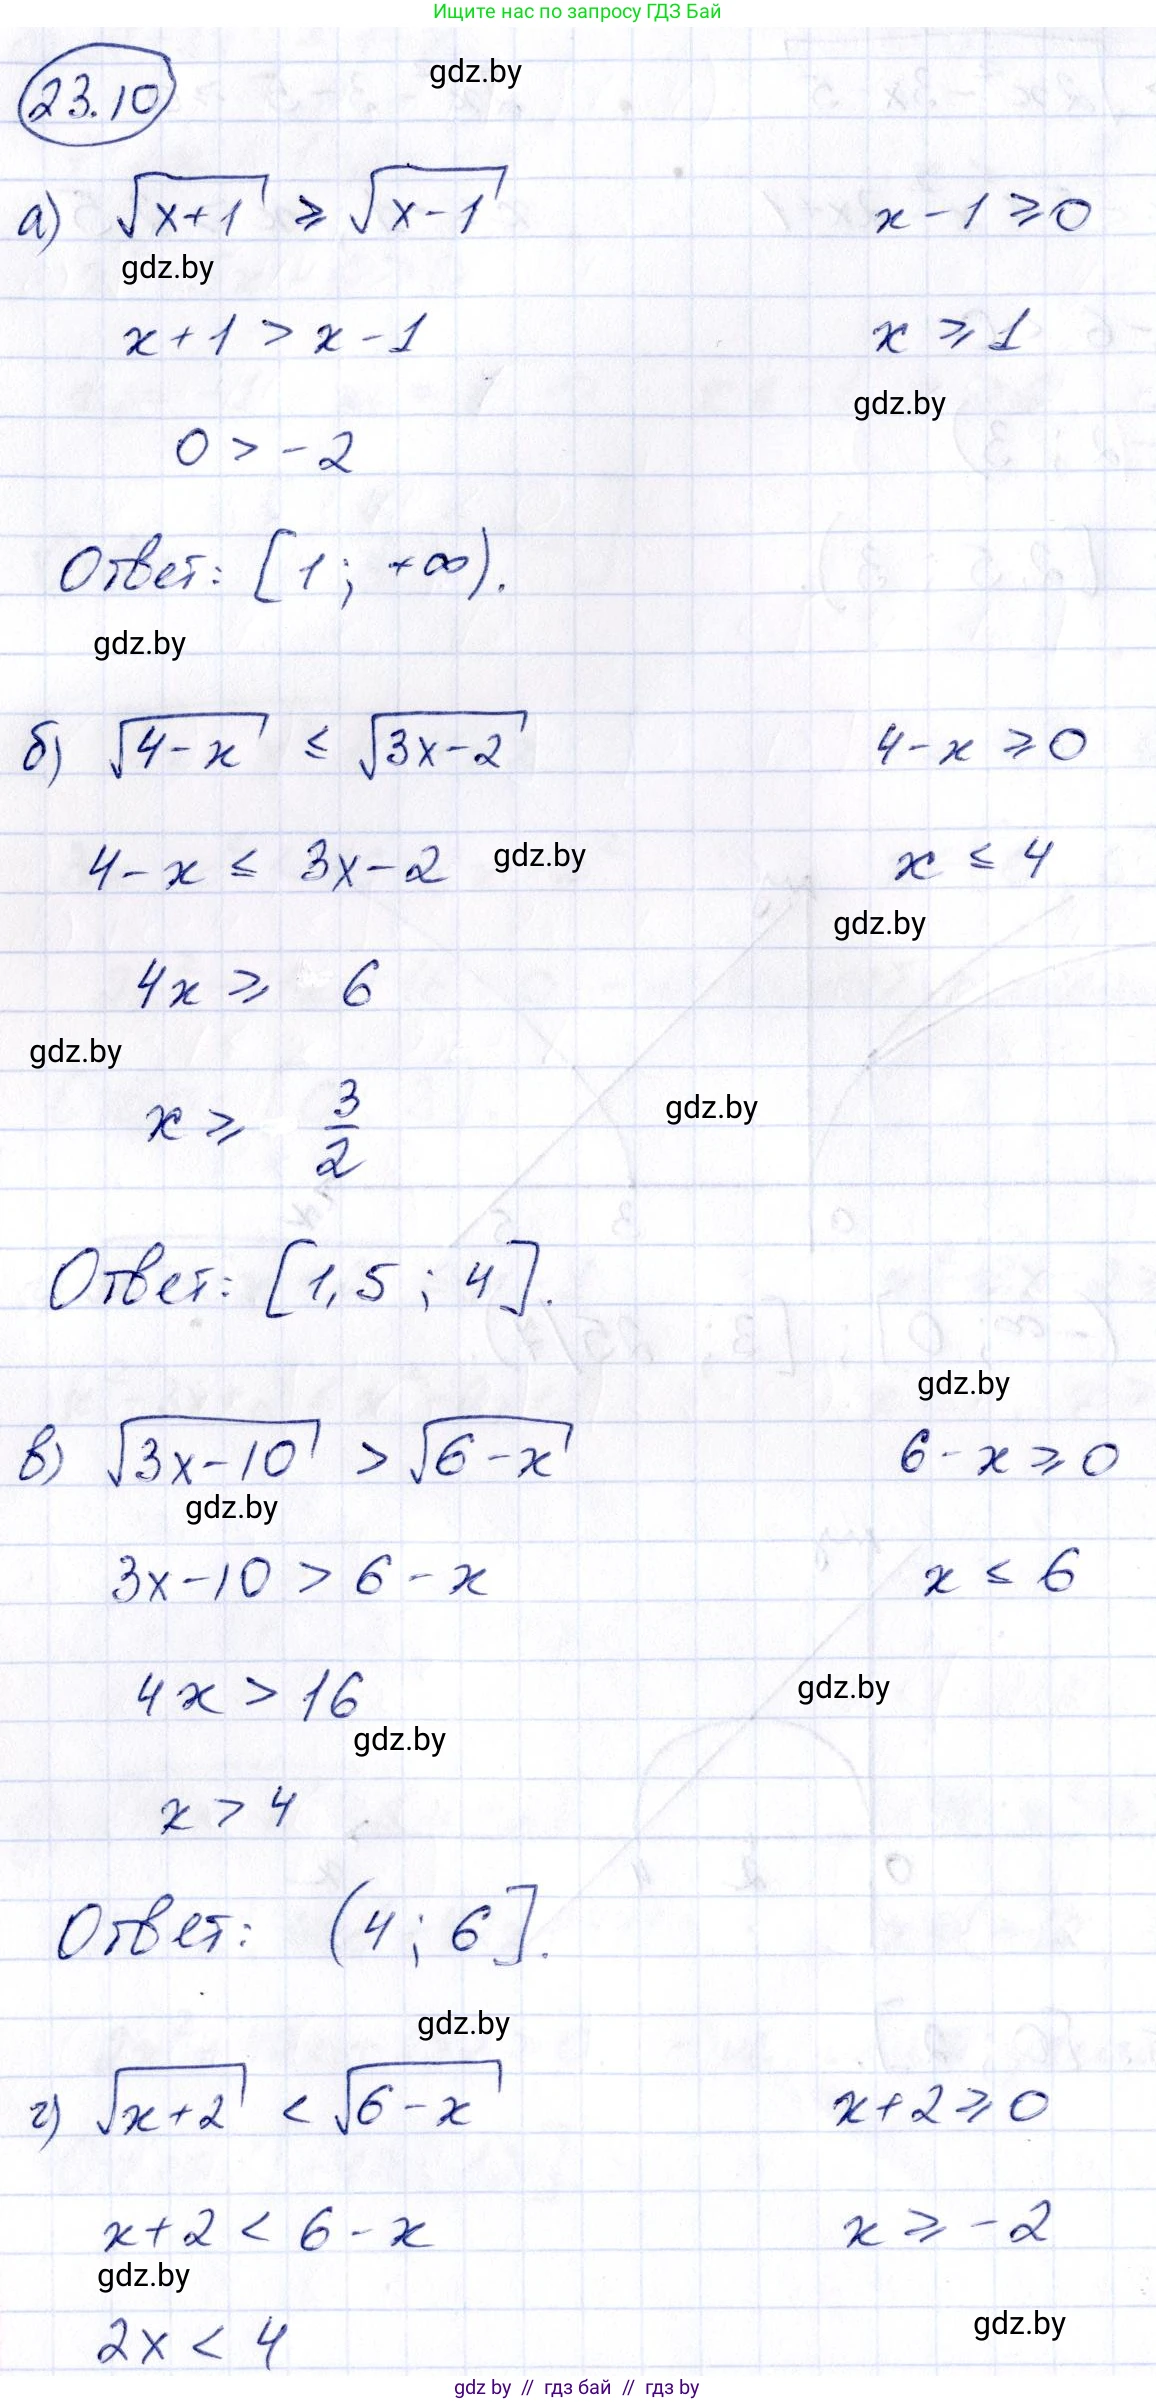 Ищите нас по запросу ГДЗ Бай
23.10
gdz.by
а) √(x+1) ⩾ √(x-1)    x-1⩾0
gdz.by
x+1 > x-1    x ⩾ 1
gdz.by
0 > -2
Ответ: [1; +∞).
gdz.by
б) √(4-x) ≤ √(3x-2)    4-x ⩾0
4-x ≤ 3x-2    x ≤ 4
gdz.by
gdz.by
4x ⩾ 6
gdz.by
x ⩾ 3/2
gdz.by
Ответ: [1,5; 4].
gdz.by
в) √(3x-10) > √(6-x)    6-x⩾0
gdz.by
3x-10 > 6-x    x ≤ 6
4x > 16
gdz.by
gdz.by
x > 4
Ответ: (4; 6].
gdz.by
г) √(x+2) < √(6-x)    x+2⩾0
x+2 < 6-x    x ⩾ -2
gdz.by
2x < 4
gdz.by
gdz by // гдз бай // гдз by